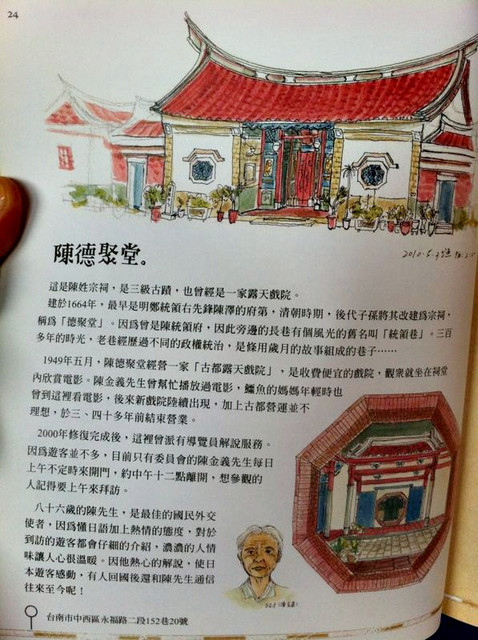 24
陳德聚堂。
這是陳姓宗祠，是三級古蹟，也曾經是一家露天戲院。
建於1664年，最早是明鄭統領右先鋒陳澤的府第，清朝時期，後代子孫將其改建爲宗祠，
稱爲「德聚堂」。因爲曾是陳統領府，因此旁邊的長巷有個風光的舊名叫「統領巷」。三百
多年的時光，老巷經歷過不同的政權統治，是條用歲月的故事組成的巷子……
1949年五月，陳德聚堂經營一家「古都露天戲院」，是收費便宜的戲院，觀衆就坐在祠堂
內欣賞電影。陳金義先生曾幫忙播放過電影，鱷魚的媽媽年輕時也
曾到這裡看電影，後來新戲院陸續出現，加上古都營運並不
理想，於三、四十多年前結束營業。
2000年修復完成後，這裡曾派有導覽員解說服務。
因爲遊客並不多，目前只有委員會的陳金義先生每日
上午不定時來開門，約中午十二點離開，想參觀的
人記得要上午來拜訪。
八十六歲的陳先生，是最佳的國民外交
使者，因爲懂日語加上熱情的態度，對於
到訪的遊客都會仔細的介紹，濃濃的人情
味讓人心很溫暖。因他熱心的解說，使日
本遊客感動，有人回國後還和陳先生通信
往來至今呢！
台南市中西區永福路二段152巷20號